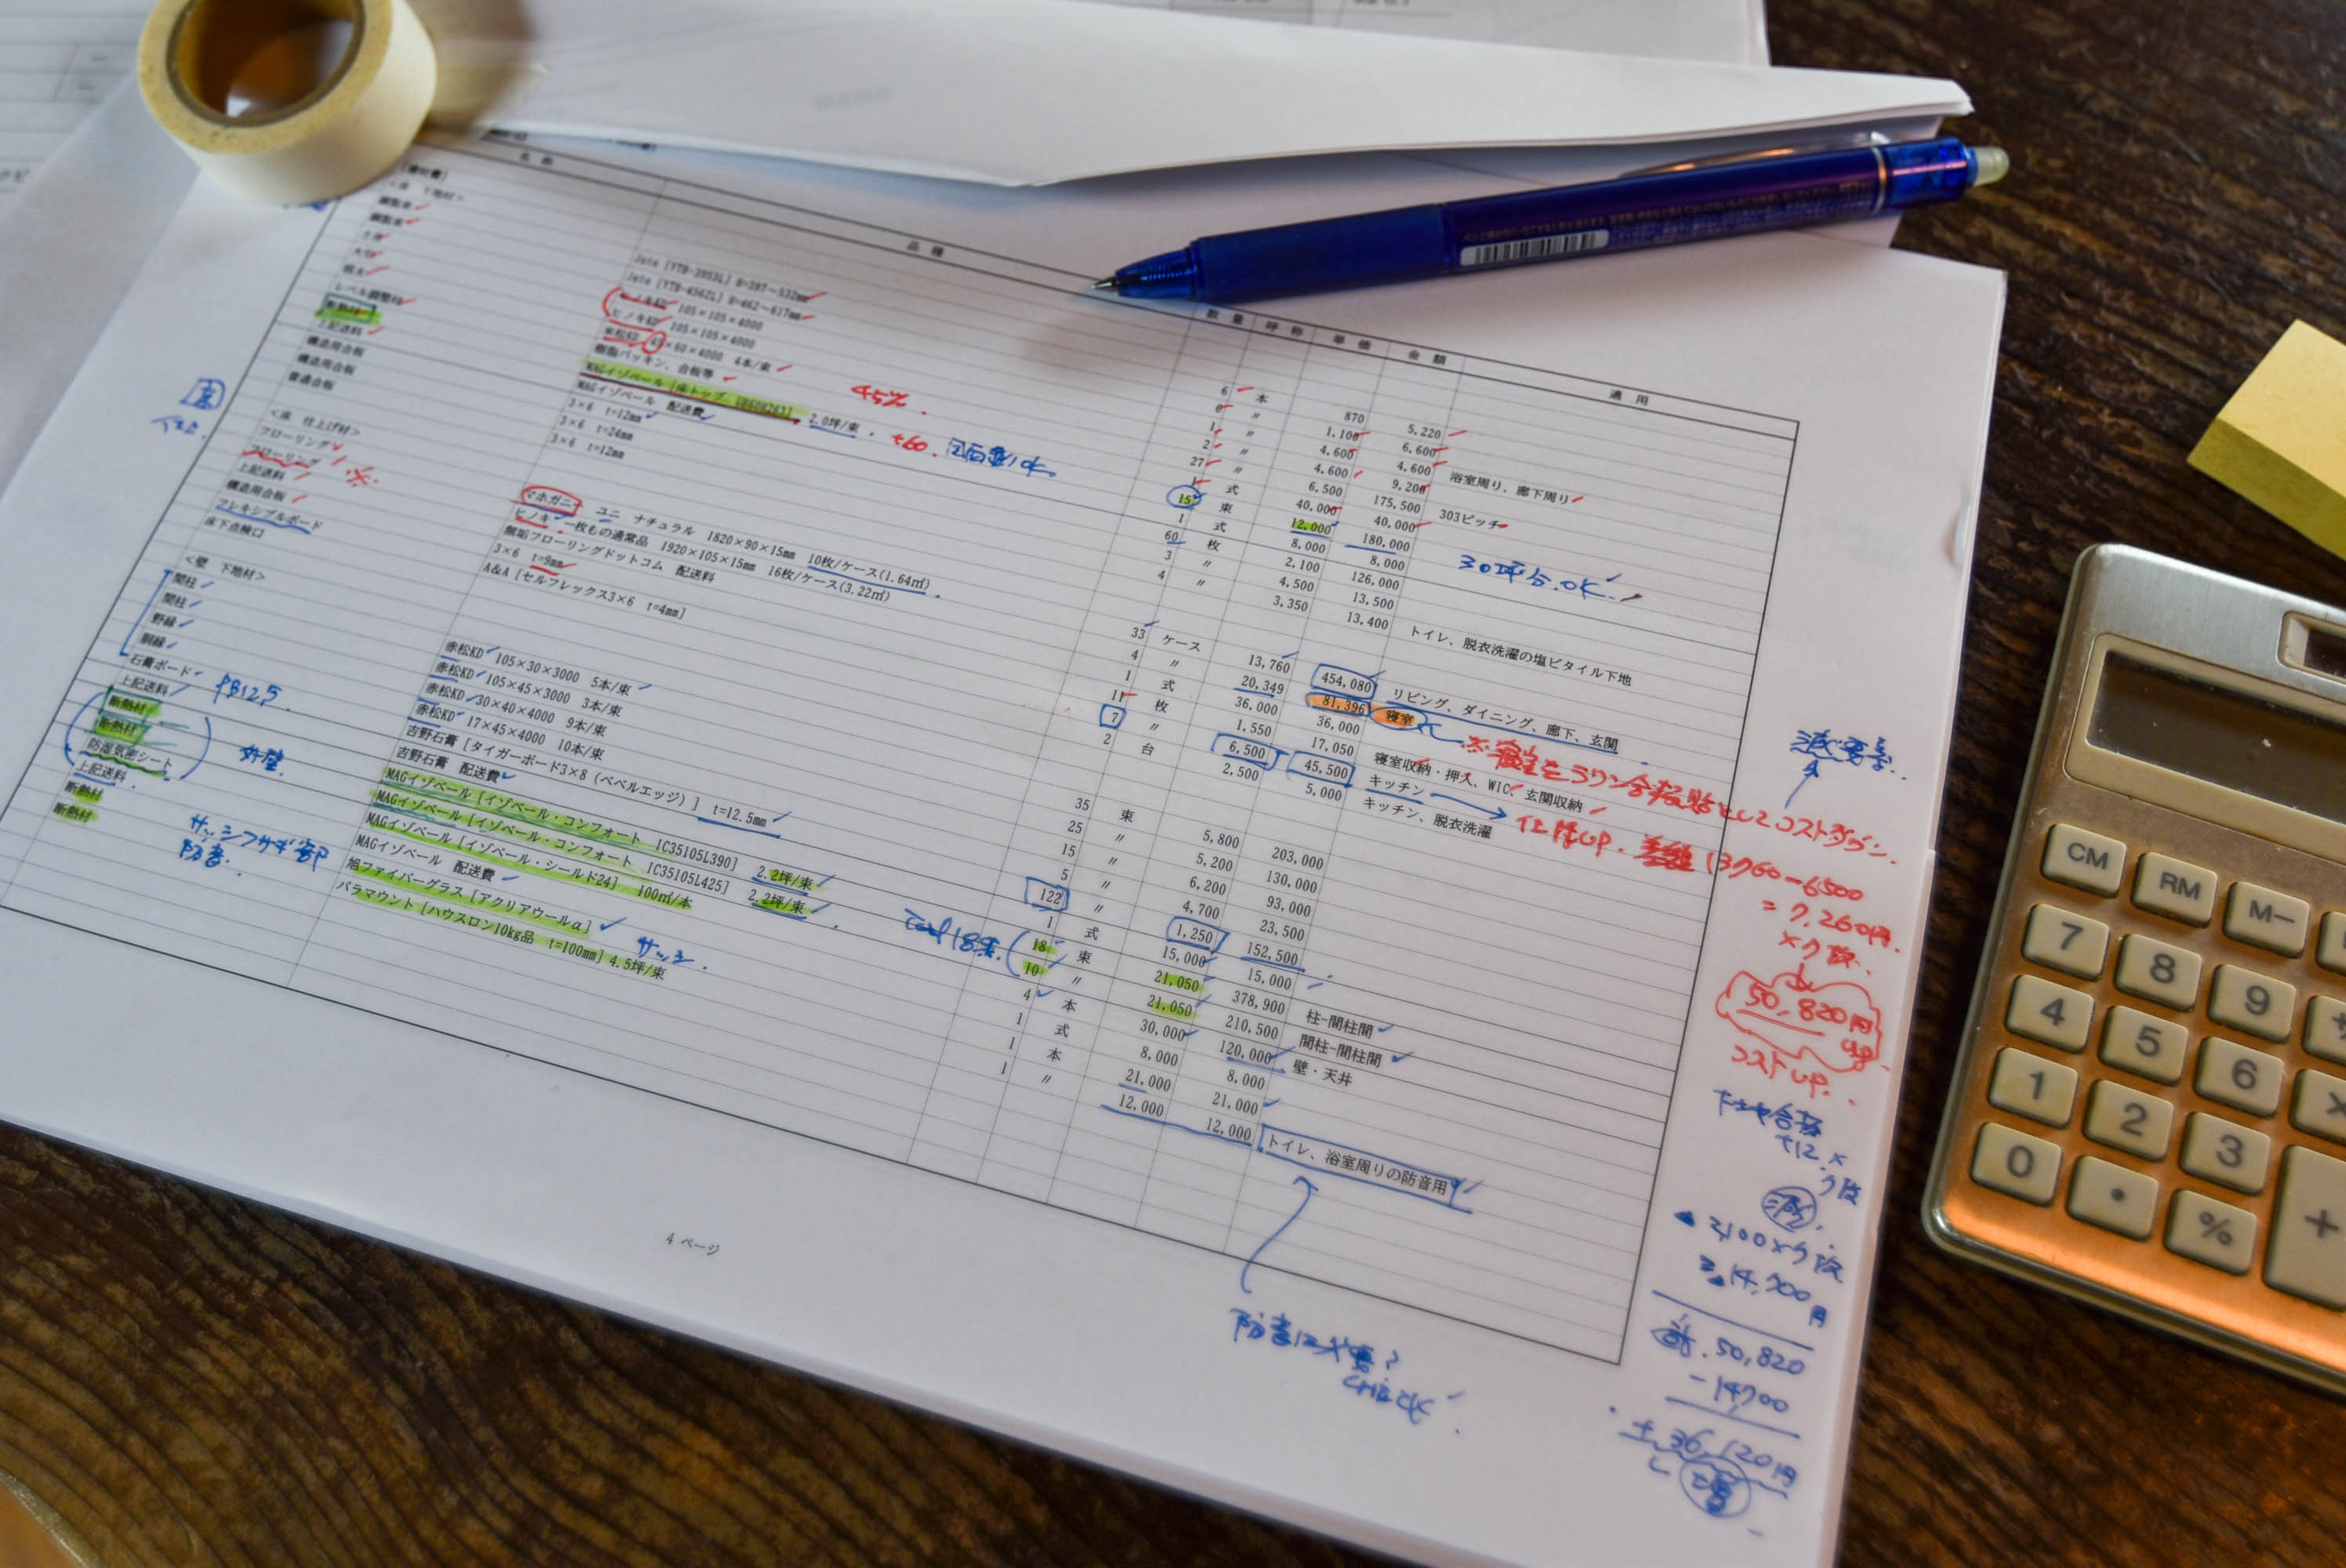 名称 品種 数量 呼称 単価 金額 適用
＜床 下地材＞
鋼製束 Joto [YTB-3953L] H=397～532mm 6 本 870 5,220
鋼製束 Joto [YTB-4562L] H=462～617mm 6 〃 1,100 6,600
ヒノキKD 105×105×4000 1 〃 4,600 4,600
大引 ヒノキKD 105×105×4000 2 〃 4,600 9,200 浴室周り、廊下周り
根太 米松KD 45×60×4000 4本/束 27 〃 6,500 175,500 303ピッチ
レベル調整材 樹脂パッキン、合板等 1 式 40,000 40,000
断熱材 MAGイゾベール [床トップ 2.0坪/束 15 束 12,000 180,000
上記送料 MAGイゾベール 配送費 1 式 8,000 8,000
構造用合板 3×6 t=12mm 60 枚 2,100 126,000
構造用合板 3×6 t=24mm 3 〃 4,500 13,500
普通合板 3×6 t=12mm 4 〃 3,350 13,400 トイレ、脱衣洗濯の塩ビタイル下地
45%.
t60.
30坪分.OK.
＜床 仕上げ材＞
フローリング マホガニー ユニ ナチュラル 1820×90×15mm 10枚/ケース(1.64㎡) 33 ケース 13,760 454,080 リビング、ダイニング、廊下、玄関
フローリング ヒノキ 一枚もの通常品 1920×105×15mm 16枚/ケース(3.22㎡) 4 〃 20,349 81,396 寝室
上記送料 無垢フローリングドットコム 配送料 1 式 36,000 36,000
構造用合板 3×6 t=9mm 11 枚 1,550 17,050 寝室収納・押入、WIC、玄関収納
フレキシブルボード A&A [セルフレックス3×6 t=4mm] 7 〃 6,500 45,500 キッチン
床下点検口 2 台 2,500 5,000 キッチン、脱衣洗濯
＜壁 下地材＞
間柱 赤松KD 105×30×3000 5本/束 35 束 5,800 203,000
間柱 赤松KD 105×45×3000 3本/束 25 〃 5,200 130,000
野縁 赤松KD 30×40×4000 9本/束 15 〃 6,200 93,000
胴縁 赤松KD 17×45×4000 10本/束 5 〃 4,700 23,500
石膏ボード 吉野石膏 [タイガーボード3×8 (ベベルエッジ)] t=12.5mm 122 1,250 152,500
上記送料 吉野石膏 配送費 1 式 15,000 15,000
断熱材 MAGイゾベール [イゾベール・コンフォート [C35105L390] 2.2坪/束 18 束 21,050 378,900 柱-間柱間
断熱材 MAGイゾベール [イゾベール・コンフォート [C35105L425] 2.2坪/束 10 〃 21,050 210,500 間柱-間柱間
防湿気密シート MAGイゾベール [イゾベール・シールド24] 100㎡/本 4 本 30,000 120,000 壁・天井
上記送料 MAGイゾベール 配送費 1 式 8,000 8,000
断熱材 旭ファイバーグラス [アクリアウールα] 1 本 21,000 21,000
断熱材 パラマウント [ハウスロン10kg品 t=100mm] 4.5坪/束 1 〃 12,000 12,000 トイレ、浴室周りの防音用
PB12.5
外壁.
サッシ.
4 ページ
コストダウン.
仕様UP. 差額 13760-6500
=7,260円.
×7枚.
50,820円
コストUP.
下地合板
t12.×
7枚
減.
▲2,100×7枚
14,700円
50,820
-14700
36,120円
増
CHECK
CM RM M−
7 8 9
4 5 6
1 2 3
0 • % +